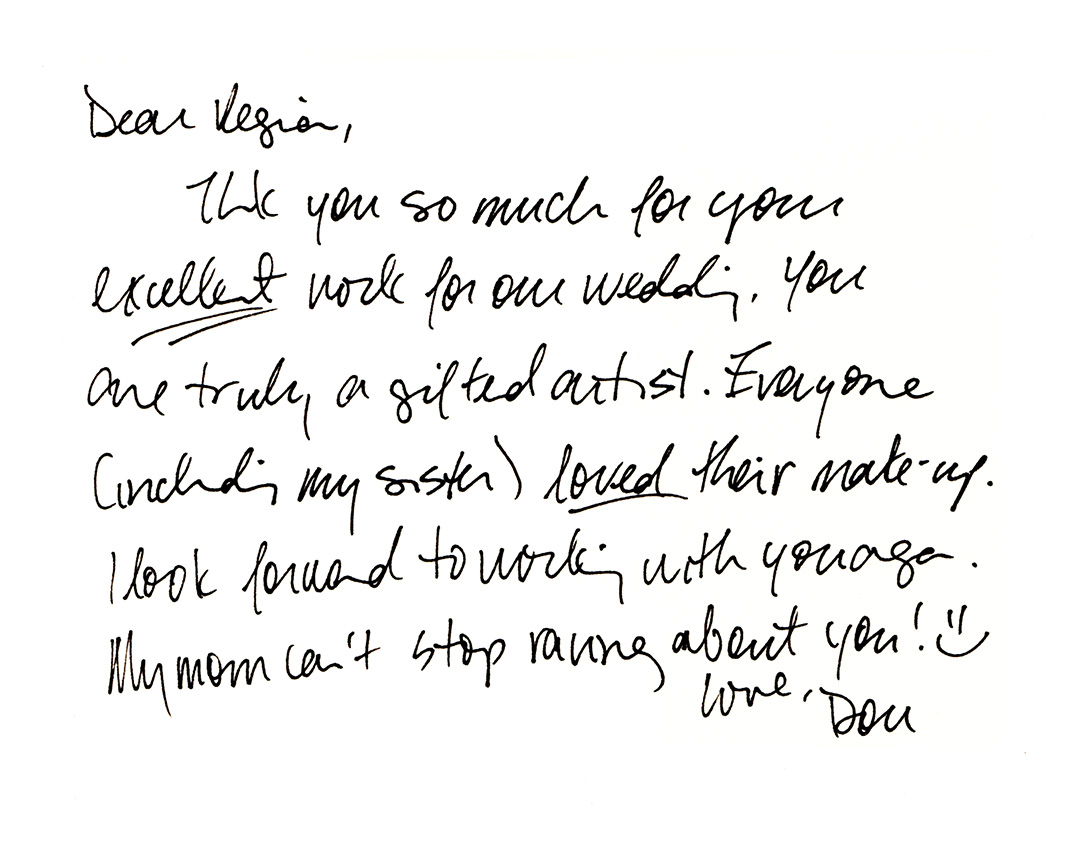 Dear Region,
Thk you so much for your
excellent work for our wedding. You
are truly a gifted artist. Everyone
(including my sister) loved their make-up.
I look forward to working with you again.
My mom can't stop raving about you! :)
love,